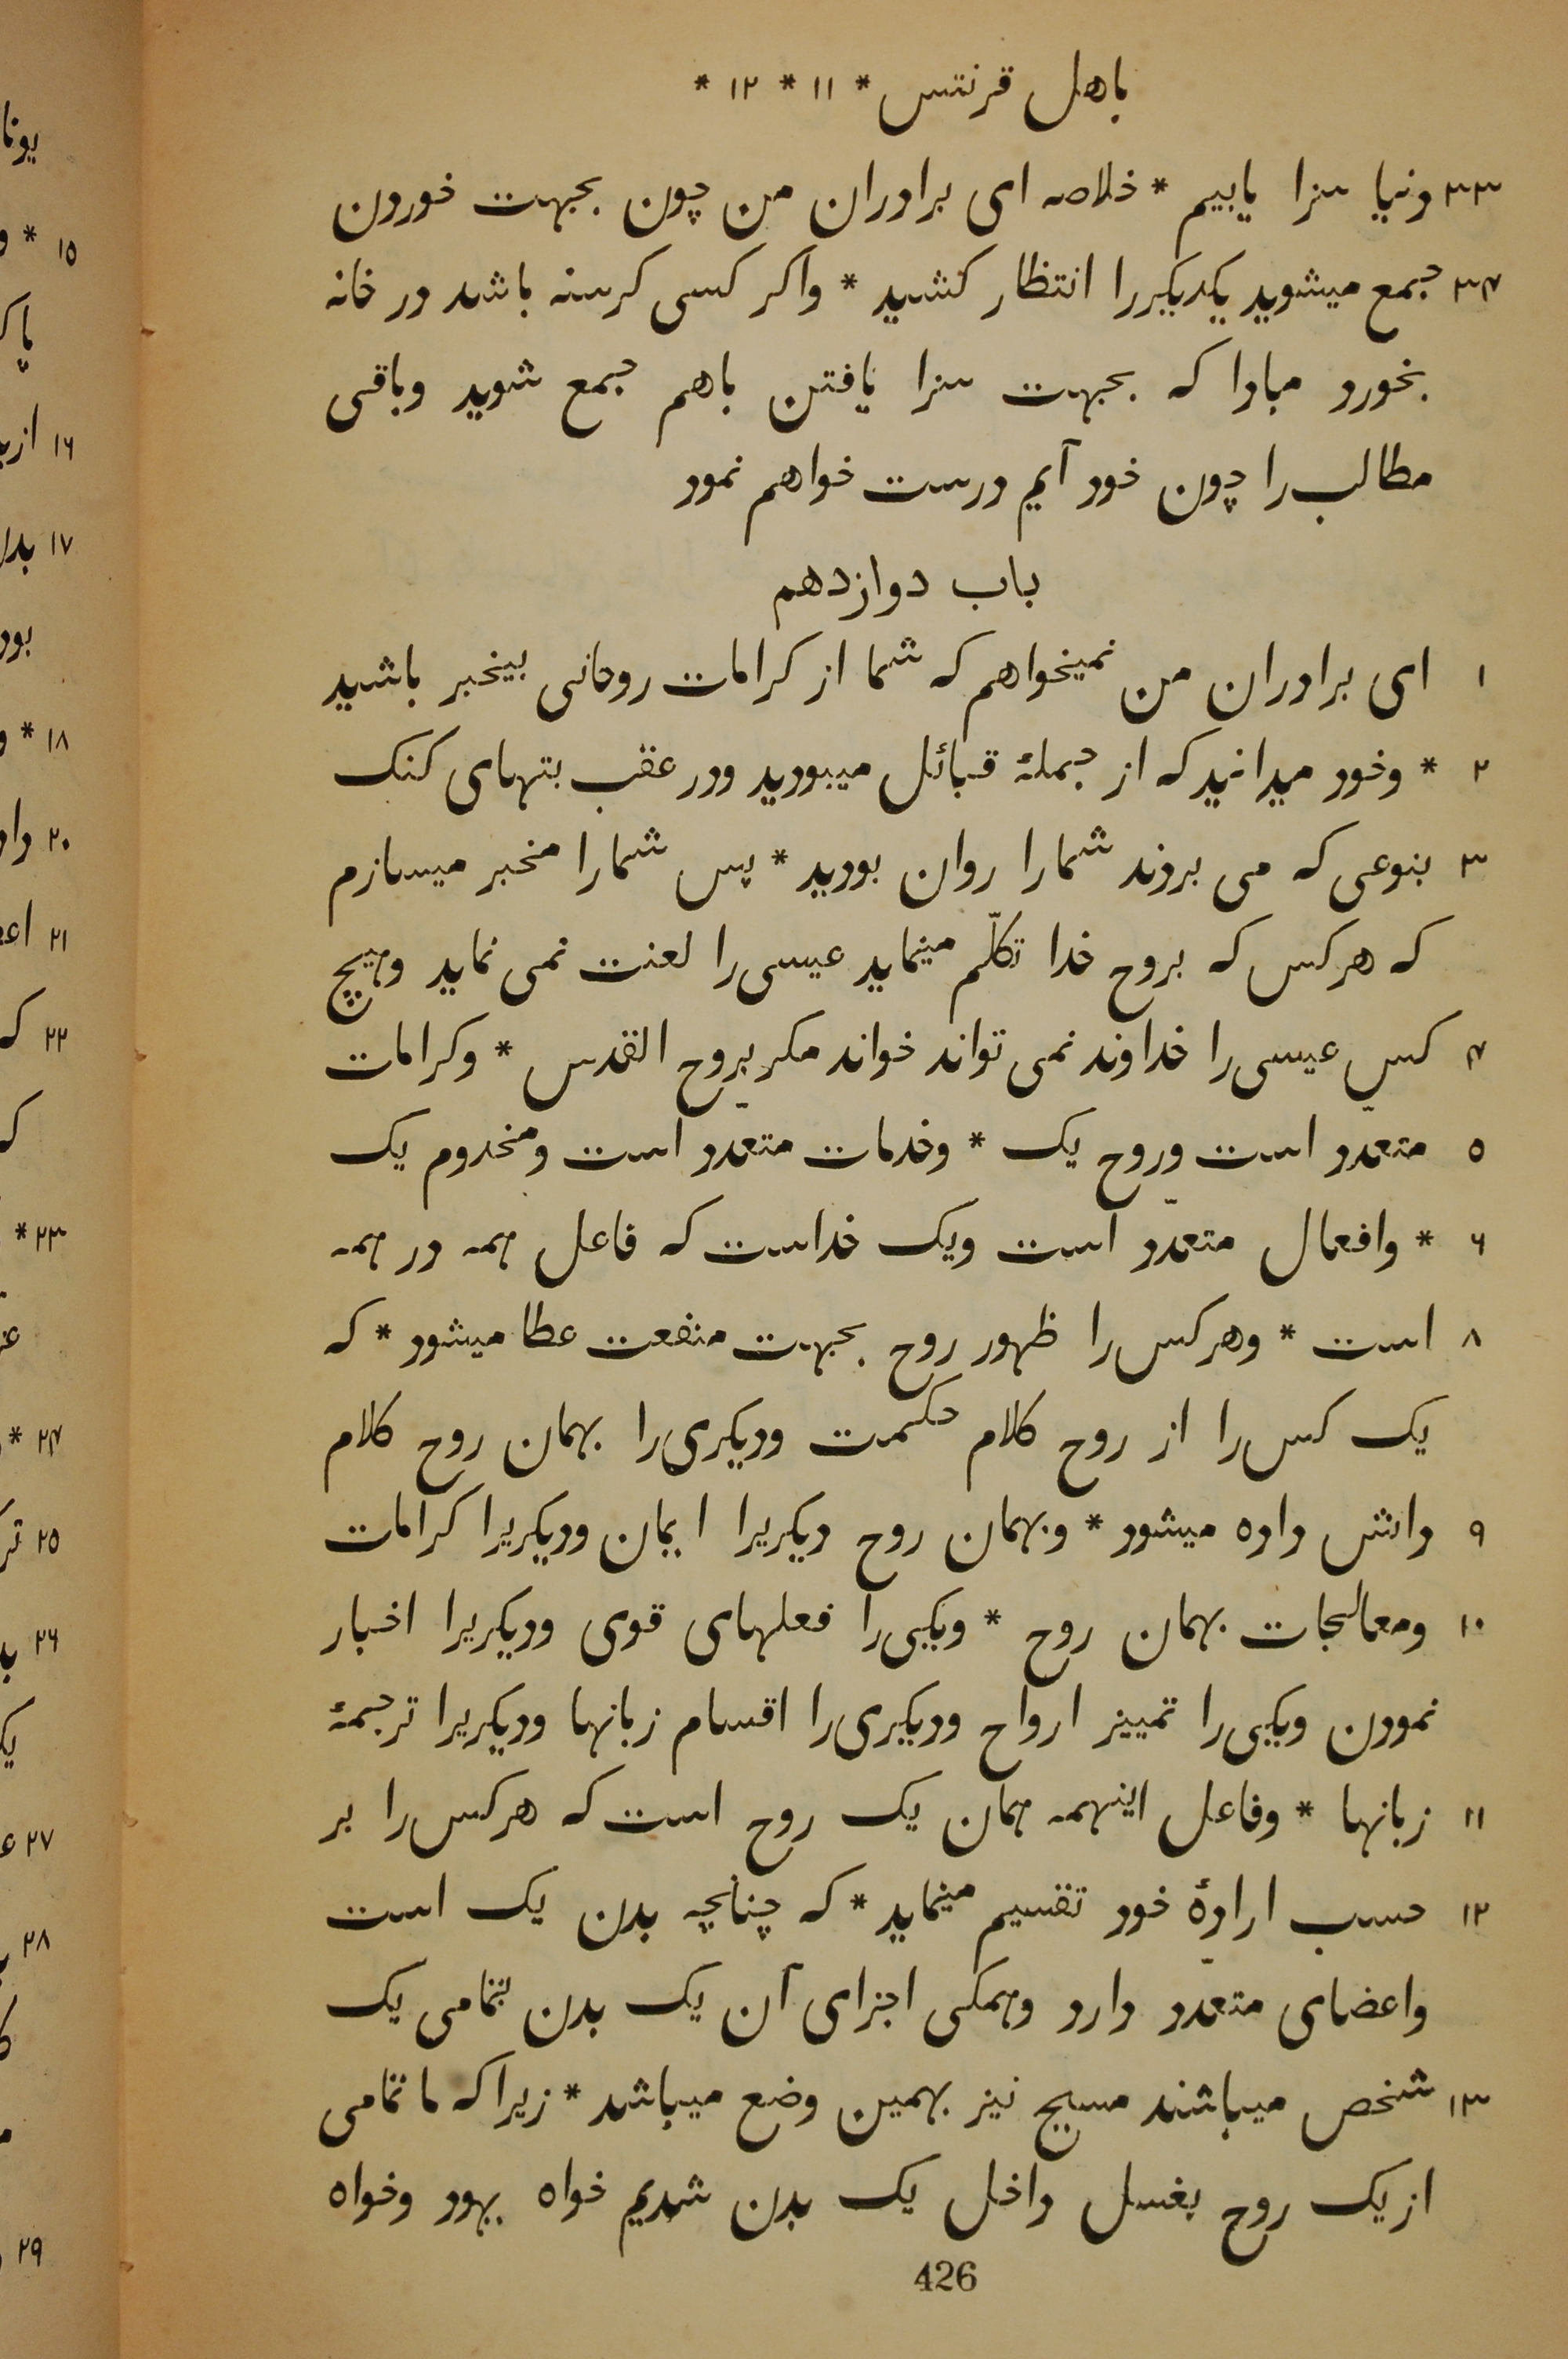 باهل قرنتس * ۱۱ * ۱۲ *
۳۳ دنیا سزا یابیم * خلاصه ای برادران من چون بجهت خوردن
۳۴ جمع میشوید یکدیکررا انتظار کشید * واکر کسی کرسنه باشد در خانه
بخورد مبادا که بجهت سزا یافتن باهم جمع شوید وباقی
مطالب را چون خود آیم درست خواهم نمود
باب دوازدهم
۱ ای برادران من نمیخواهم که شما از کرامات روحانی بیخبر باشید
۲ * وخود میدانید که از جملهٔ قبائل میبودید ودر عقب بتهای کنک
۳ بنوعی که می بردند شمارا روان بودید * پس شمارا مخبر میسازم
که هرکس که بروح خدا تکلّم مینماید عیسی را لعنت نمی نماید وهیچ
۴ کس عیسی را خداوند نمی تواند خواند مکر بروح القدس * وکرامات
۵ متعدّد است وروح یک * وخدمات متعدّد است ومخدوم یک
۶ * وافعال متعدّد است ویک خداست که فاعل همه در همه
۸ است * وهرکس را ظهور روح بجهت منفعت عطا میشود * که
یک کس را از روح کلام حکمت ودیکری را بهمان روح کلام
۹ دانش داده میشود * وبهمان روح دیکریرا ایمان ودیکریرا کرامات
۱۰ ومعالجات بهمان روح * ویکی را فعلهای قوی ودیکریرا اخبار
نمودن ویکی را تمییز ارواح ودیکری را اقسام زبانها ودیکریرا ترجمهٔ
۱۱ زبانها * وفاعل اینهمه همان یک روح است که هرکس را بر
۱۲ حسب ارادهٔ خود تقسیم مینماید * که چنانچه بدن یک است
واعضای متعدّد دارد وهمکی اجزای آن یک بدن بتمامی یک
۱۳ شخص میباشند مسیح نیز بهمین وضع میباشد * زیرا که ما تمامی
از یک روح بغسل داخل یک بدن شدیم خواه یهود وخواه
426
یونا
۱۵ * و
پاک
۱۶
۱۷
بود
۱۸ * و
۲۰
۲۱
۲۲ که
۲۳ *
۲۴ *
۲۵
۲۶
۲۷
۲۸
۲۹